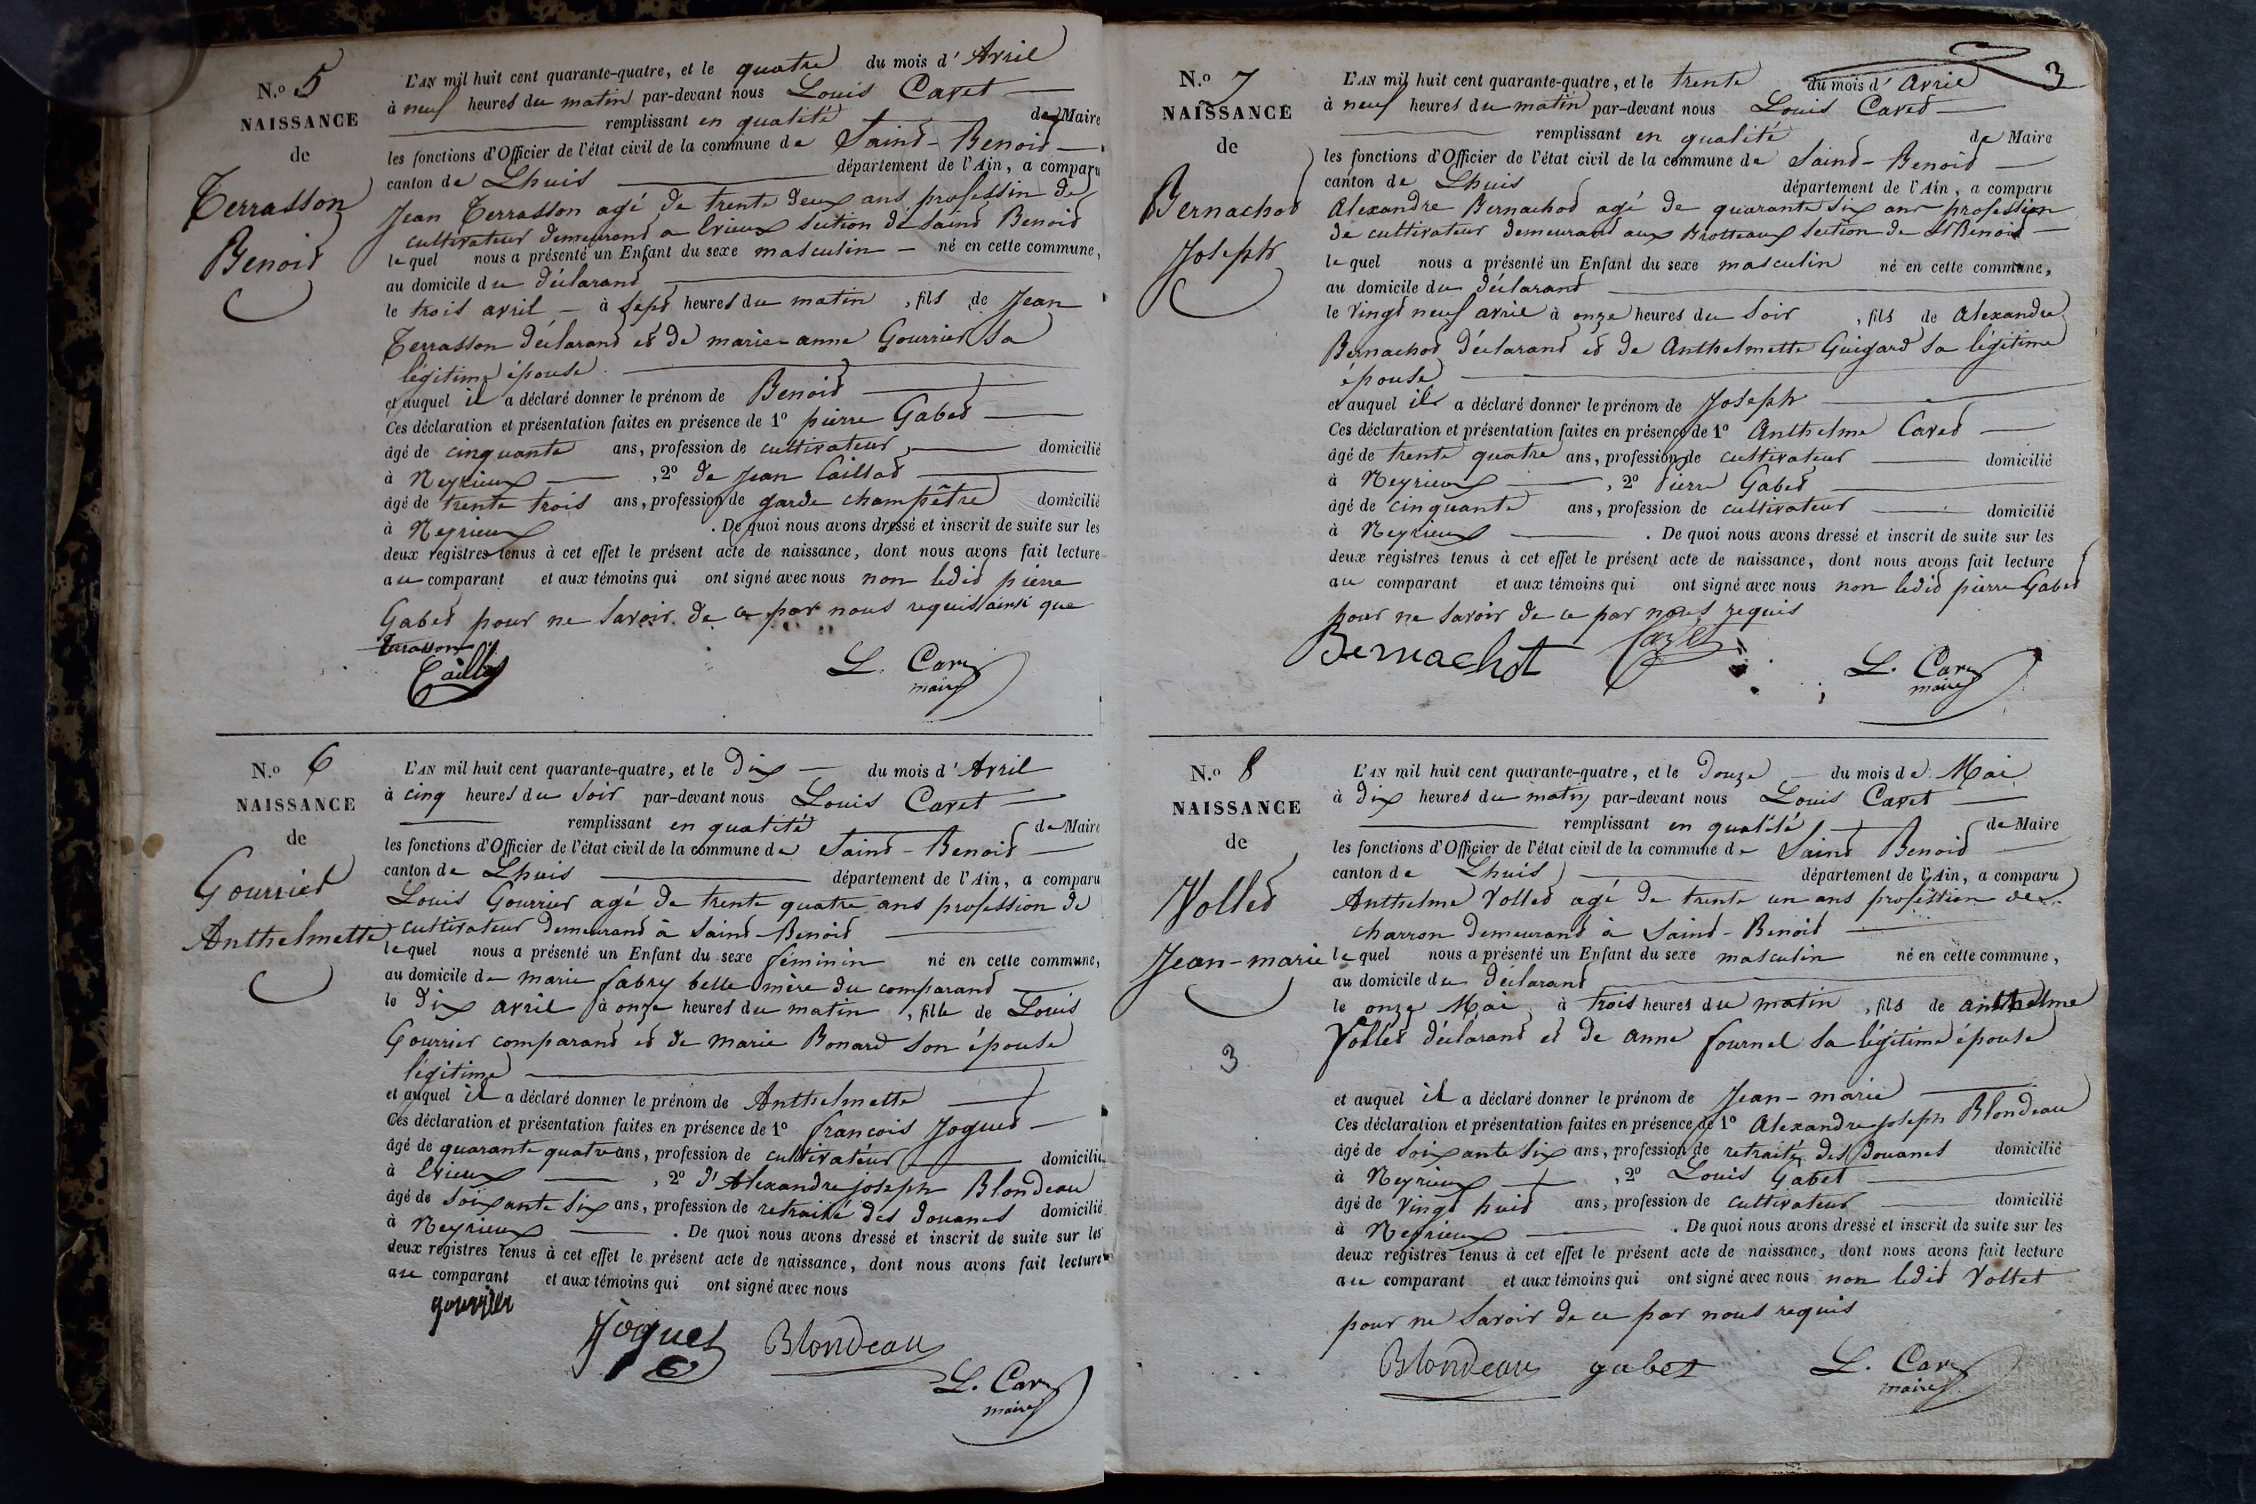 N.o 5
NAISSANCE
de
Terrasson
Benoit
L'AN mil huit cent quarante-quatre, et le quatre du mois d'Avril
à neuf heures du matin par-devant nous Louis Cavet
remplissant en qualité de Maire
les fonctions d'Officier de l'état civil de la commune de Saint-Benoit
canton de Lhuis département de l'Ain, a comparu
Jean Terrasson agé de trente deux ans profession de
cultivateur demeurant a Evieux section de Saint Benoit
lequel nous a présenté un Enfant du sexe masculin né en cette commune,
au domicile du déclarant
le trois avril à sept heures du matin, fils de Jean
Terrasson déclarant et de marie-anne Gourrier sa
légitime épouse
et auquel il a déclaré donner le prénom de Benoit
Ces déclaration et présentation faites en présence de 1o pierre Gabet
âgé de cinquante ans, profession de cultivateur domicilié
à Neyrieux, 2o de Jean Caillat
âgé de trente trois ans, profession de garde champêtre domicilié
à Neyrieux. De quoi nous avons dressé et inscrit de suite sur les
deux registres tenus à cet effet le présent acte de naissance, dont nous avons fait lecture
au comparant et aux témoins qui ont signé avec nous non ledit pierre
Gabet pour ne savoir de ce par nous requis ainsi que
terasson
Caillat
L. Cavet
maire
N.o 6
NAISSANCE
de
Gourrier
Anthelmette
L'AN mil huit cent quarante-quatre, et le dix du mois d'Avril
à cinq heures du soir par-devant nous Louis Cavet
remplissant en qualité de Maire
les fonctions d'Officier de l'état civil de la commune de Saint-Benoit
canton de Lhuis département de l'Ain, a comparu
Louis Gourrier agé de trente quatre ans profession de
cultivateur demeurant à Saint-Benoit
lequel nous a présenté un Enfant du sexe féminin né en cette commune,
au domicile de marie fabry belle mère du comparant
le dix avril à onze heures du matin, fille de Louis
Gourrier comparant et de marie Bonard son épouse
légitime
et auquel il a déclaré donner le prénom de Anthelmette
Ces déclaration et présentation faites en présence de 1o françois Joguet
âgé de quarante quatre ans, profession de cultivateur domicilié
à Evieux, 2o d'Alexandre joseph Blondeau
âgé de soixante six ans, profession de retraité des douanes domicilié
à Neyrieux. De quoi nous avons dressé et inscrit de suite sur les
deux registres tenus à cet effet le présent acte de naissance, dont nous avons fait lecture
au comparant et aux témoins qui ont signé avec nous
gourrier
Joguet Blondeau
L. Cavet
maire
3
N.o 7
NAISSANCE
de
Bernachot
Joseph
L'AN mil huit cent quarante-quatre, et le trente du mois d'Avril
à neuf heures du matin par-devant nous Louis Cavet
remplissant en qualité de Maire
les fonctions d'Officier de l'état civil de la commune de Saint-Benoit
canton de Lhuis département de l'Ain, a comparu
Alexandre Bernachot agé de quarante six ans profession
de cultivateur demeurant aux Brotteaux section de St Benoit
lequel nous a présenté un Enfant du sexe masculin né en cette commune,
au domicile du déclarant
le vingt neuf avril à onze heures du soir, fils de Alexandre
Bernachot déclarant et de Anthelmette Guigard sa légitime
épouse
et auquel il a déclaré donner le prénom de Joseph
Ces déclaration et présentation faites en présence de 1o Anthelme Cavet
âgé de trente quatre ans, profession de cultivateur domicilié
à Neyrieux, 2o Pierre Gabet
âgé de cinquante ans, profession de cultivateur domicilié
à Neyrieux. De quoi nous avons dressé et inscrit de suite sur les
deux registres tenus à cet effet le présent acte de naissance, dont nous avons fait lecture
au comparant et aux témoins qui ont signé avec nous non ledit pierre Gabet
pour ne savoir de ce par nous requis
Bernachot Cavet
L. Cavet
maire
N.o 8
NAISSANCE
de
Vollet
Jean-marie
3
L'AN mil huit cent quarante-quatre, et le douze du mois de Mai
à dix heures du matin par-devant nous Louis Cavet
remplissant en qualité de Maire
les fonctions d'Officier de l'état civil de la commune de Saint Benoit
canton de Lhuis département de l'Ain, a comparu
Anthelme Vollet agé de trente un ans profession de
charron demeurant à Saint-Benoit
lequel nous a présenté un Enfant du sexe masculin né en cette commune,
au domicile du déclarant
le onze Mai à trois heures du matin, fils de anthelme
Vollet déclarant et de anne fournel sa légitime épouse
et auquel il a déclaré donner le prénom de Jean-marie
Ces déclaration et présentation faites en présence de 1o Alexandre joseph Blondeau
âgé de soixante six ans, profession de retraité des douanes domicilié
à Neyrieux, 2o Louis Gabet
âgé de vingt huit ans, profession de cultivateur domicilié
à Neyrieux. De quoi nous avons dressé et inscrit de suite sur les
deux registres tenus à cet effet le présent acte de naissance, dont nous avons fait lecture
au comparant et aux témoins qui ont signé avec nous non ledit Vollet
pour ne savoir de ce par nous requis
Blondeau gabet
L. Cavet
maire